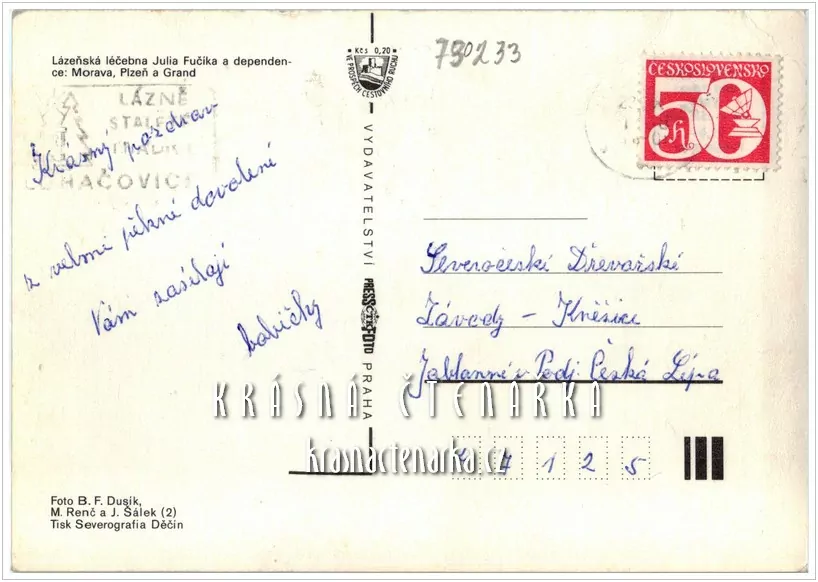 Lázeňská léčebna Julia Fučíka a dependen-
ce: Morava, Plzeň a Grand
Kčs 0,20
VE PROSPĚCH CESTOVNÍHO RUCHU
730233
ČESKOSLOVENSKO
50 h
LÁZNĚ
STALETÉ
TRADICE
LUHAČOVICE
Krásný pozdrav
z velmi pěkné dovolené
Vám zasílají
babičky
VYDAVATELSTVÍ PRESSFOTO PRAHA
ČTK
Severočeské Dřevařské
Závody – Kněžice
Jablonné v Podj. Česká Lípa
47125
KRÁSNÁ ČTENÁŘKA
krasnactenarka.cz
Foto B. F. Dusík,
M. Renč a J. Šálek (2)
Tisk Severografia Děčín